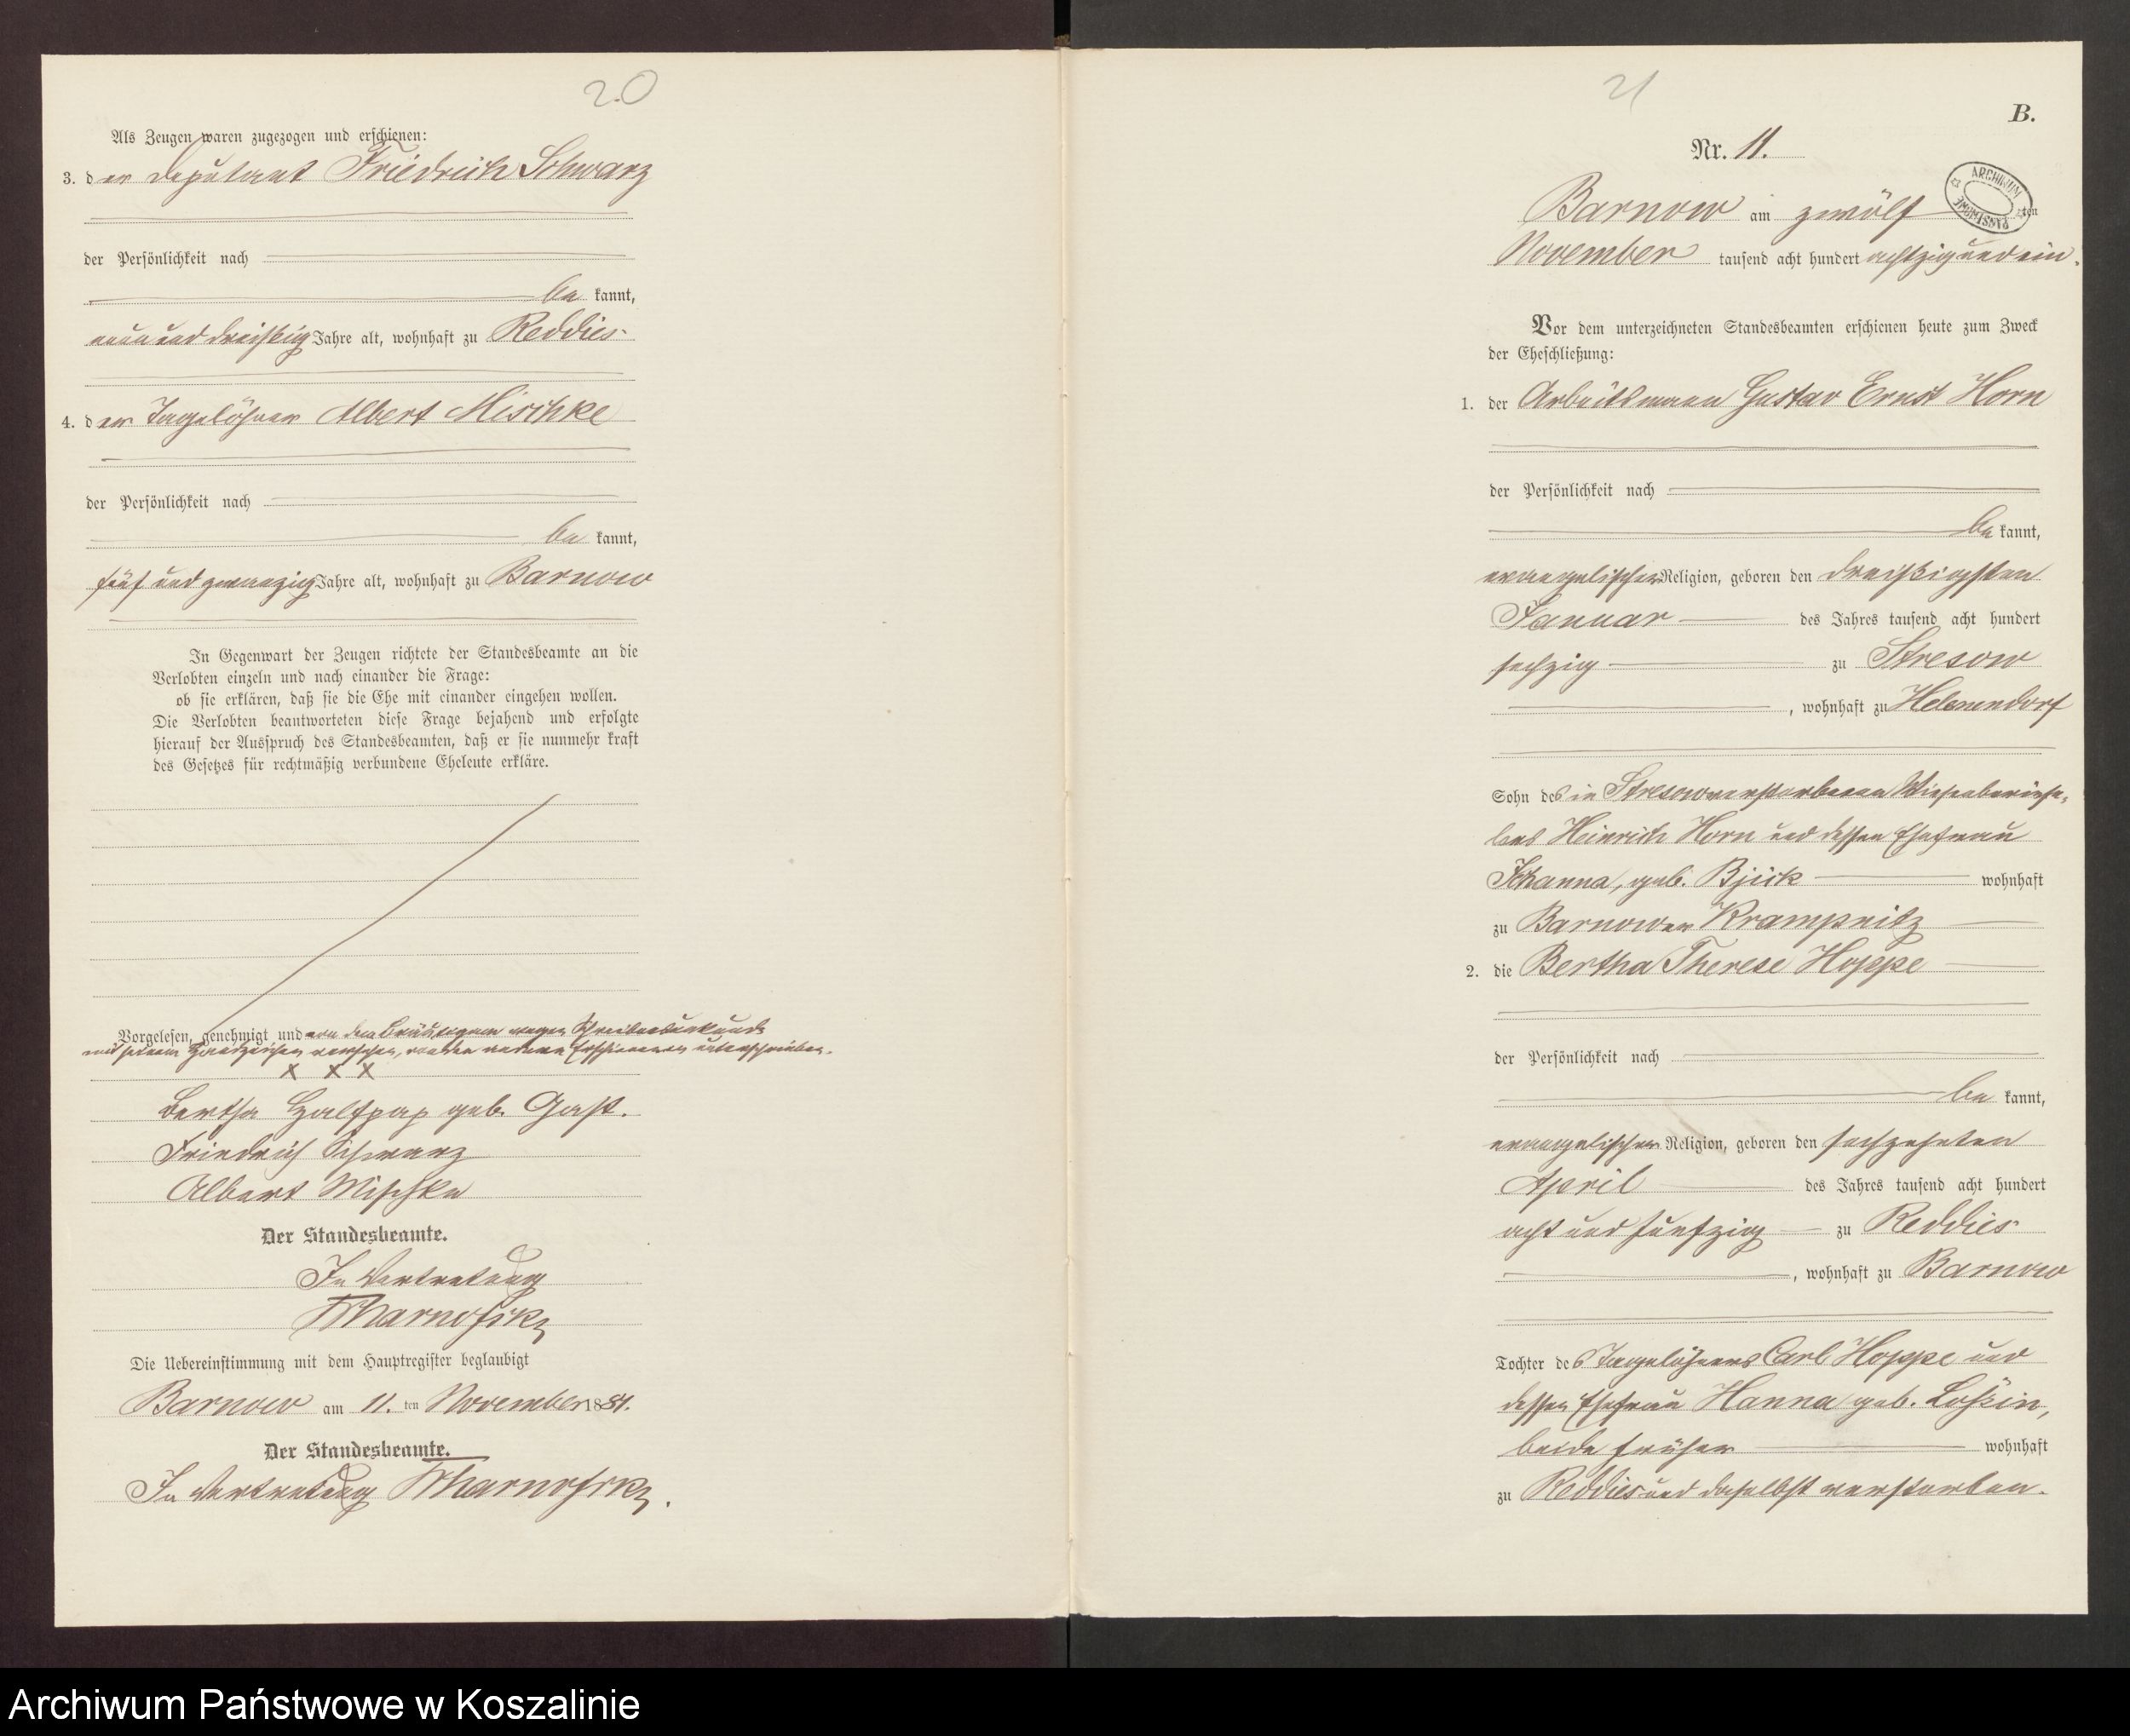 20
Als Zeugen waren zugezogen und erschienen:
3. der Deputant Friedrich Schwarz
der Persönlichkeit nach
be kannt,
neun und dreißig Jahre alt, wohnhaft zu Reddies
4. der Tagelöhner Albert Mischke
der Persönlichkeit nach
be kannt,
fünf und zwanzig Jahre alt, wohnhaft zu Barnow
In Gegenwart der Zeugen richtete der Standesbeamte an die
Verlobten einzeln und nach einander die Frage:
ob sie erklären, daß sie die Ehe mit einander eingehen wollen.
Die Verlobten beantworteten diese Frage bejahend und erfolgte
hierauf der Ausspruch des Standesbeamten, daß er sie nunmehr kraft
des Gesetzes für rechtmäßig verbundene Eheleute erkläre.
Vorgelesen, genehmigt und von dem Bräutigam wegen Schreibensunkunde
mit seinem Handzeichen versehen, von den anderen Erschienenen unterschrieben.
X X X
Bertha Halfpap geb. Gast.
Friedrich Schwarz
Albert Mischke
Der Standesbeamte.
In Vertretung
Die Uebereinstimmung mit dem Hauptregister beglaubigt
Barnow am 11. ten November 1881.
Der Standesbeamte.
In Vertretung
21
B.
Nr. 11.
ARCHIWUM PAŃSTWOWE
Barnow am zwölf ten
November tausend acht hundert achtzig und ein.
Vor dem unterzeichneten Standesbeamten erschienen heute zum Zweck
der Eheschließung:
1. der Arbeitsmann Gustav Ernst Horn
der Persönlichkeit nach
be kannt,
evangelischer Religion, geboren den dreißigsten
Januar des Jahres tausend acht hundert
sechzig zu Stresow
, wohnhaft zu Helenendorf
Sohn des in Stresow verstorbenen
Heinrich Horn und dessen Ehefrau
Johanna, geb. wohnhaft
zu Barnower Krampnitz
2. die Bertha Therese Hoppe
der Persönlichkeit nach
be kannt,
evangelischer Religion, geboren den sechzehnten
April des Jahres tausend acht hundert
acht und fünfzig zu Reddies
, wohnhaft zu Barnow
Tochter des Tagelöhners Carl Hoppe und
dessen Ehefrau Hanna geb. Loßin,
beide früher wohnhaft
zu Reddies und daselbst verstorben.
Archiwum Państwowe w Koszalinie